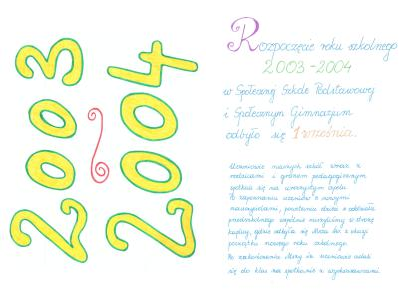 2003
2004
Rozpoczęcie roku szkolnego
2003-2004
w Społecznej Szkole Podstawowej
i Społecznym Gimnazjum
odbyło się 1 września.
Uczniowie naszych szkół wraz z
rodzicami i gronem pedagogicznym
spotkali się na uroczystym apelu.
Po zapoznaniu uczniów z nowymi
nauczycielami, powitaniu dzieci z oddziału
przedszkolnego wspólnie ruszyliśmy w stronę
kaplicy, gdzie odbyła się Msza św. z okazji
początku nowego roku szkolnego.
Po zakończeniu Mszy św. uczniowie udali
się do klas na spotkanie z wychowawcami.